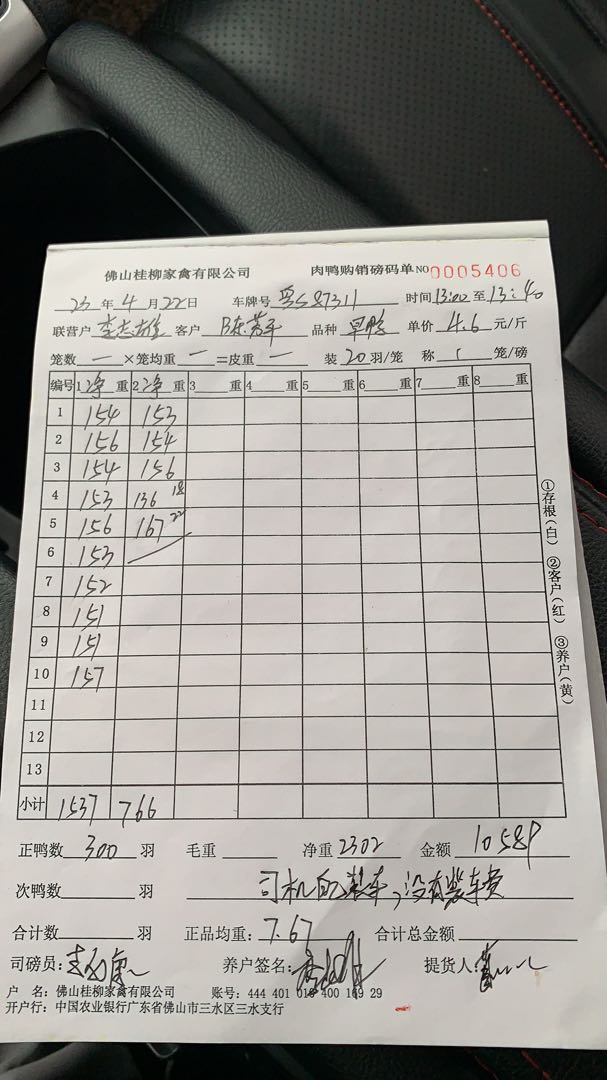 佛山桂柳家禽有限公司 肉鸭购销磅码单 NO 0005406
23 年 4 月 22 日 车牌号 粤S87311 时间 13:00 至 13:40
联营户 李志雄 客户 陈芳平 品种 旱鸭 单价 4.6 元/斤
笼数 一 ×笼均重 一 =皮重 一 装 20 羽/笼 称 1 笼/磅
编号 1 净 重 2 净 重 3 重 4 重 5 重 6 重 7 重 8 重
1 154 153
2 156 154
3 154 156
4 153 136 18
5 156 167 22
6 153
7 152
8 151
9 151
10 157
11
12
13
小计 1537 766
正鸭数 300 羽 毛重 净重 2302 金额 10589
次鸭数 羽 司机自装车,没有装车费
合计数 羽 正品均重: 7.67 合计总金额
司磅员: 养户签名: 提货人:
户 名: 佛山桂柳家禽有限公司 账号: 444 401 010 400 169 29
开户行: 中国农业银行广东省佛山市三水区三水支行
①存根(白) ②客户(红) ③养户(黄)